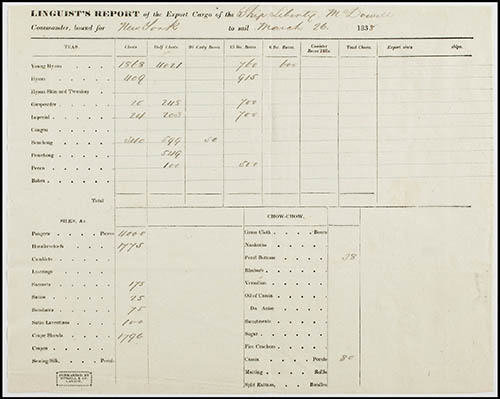 LINGUIST'S REPORT of the Export Cargo of the Ship Liberty McDowell
Commander, bound for New York to sail March 26 183
TEAS. Chests Half Chests 15 lbs. Boxes 6 lbs. Boxes Canister Boxes Hills Total Chests Export ships.
Young Hyson 1868 4021 760 600
Hyson 409 915
Hyson Skin and Twankay
Gunpowder 20 245 700
Imperial 24 203 700
Congou
Souchong 340 699 50
Pouchong 549
Pecco 100 500
Bohea
Total
SILKS, &c.
Pongees Pieces 4000
Handkerchiefs 1775
Camblets
Lustrings
Sarsnets 175
Satins 25
75
Satin Levantines 100
Crape Shawls 1796
Crapes
Sewing Silk, Peculs
CHOW-CHOW.
Grass Cloth Boxes
Nankeens
Pearl Buttons 28
Rhubarb
Vermilion
Oil of Cassia
Do. Anise
Sweetmeats
Sugar
Fire Crackers
Cassia Peculs 80
Matting Rolls
Split Rattans, Bundles
FORWARDED BY
RUSSELL & CO.
CANTON.